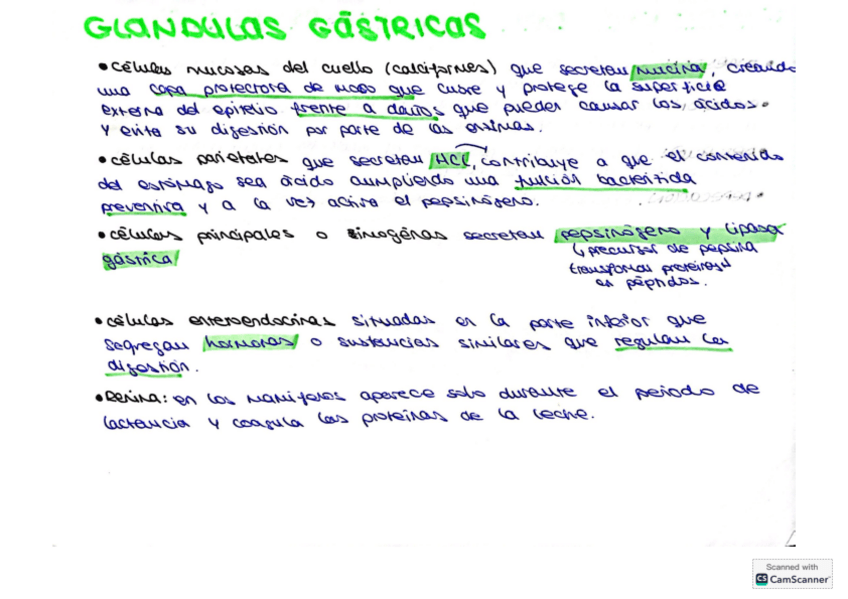 GLANDULAS GÁSTRICAS
•células mucosas del cuello (calciformes) que secretan mucina, creando
una capa protectora de moco que cubre y protege la superficie
externa del epitelio frente a daños que pueden causar los ácidos
y evita su digestión por parte de las enzimas.
•células parietales que secretan HCl, contribuye a que el contenido
del estómago sea ácido cumpliendo una función bactericida
preventiva y a la vez activa el pepsinógeno.
•células principales o zimogénas secretan pepsinógeno y lipasa
gástrica
↳ precursor de pepsina
transforma proteínas
en péptidos.
•células enteroendocrinas situadas en la parte inferior que
segregan hormonas o sustancias similares que regulan la
digestión.
•Renina: en los mamíferos aparece solo durante el periodo de
lactancia y coagula las proteínas de la leche.
Scanned with
CS CamScanner